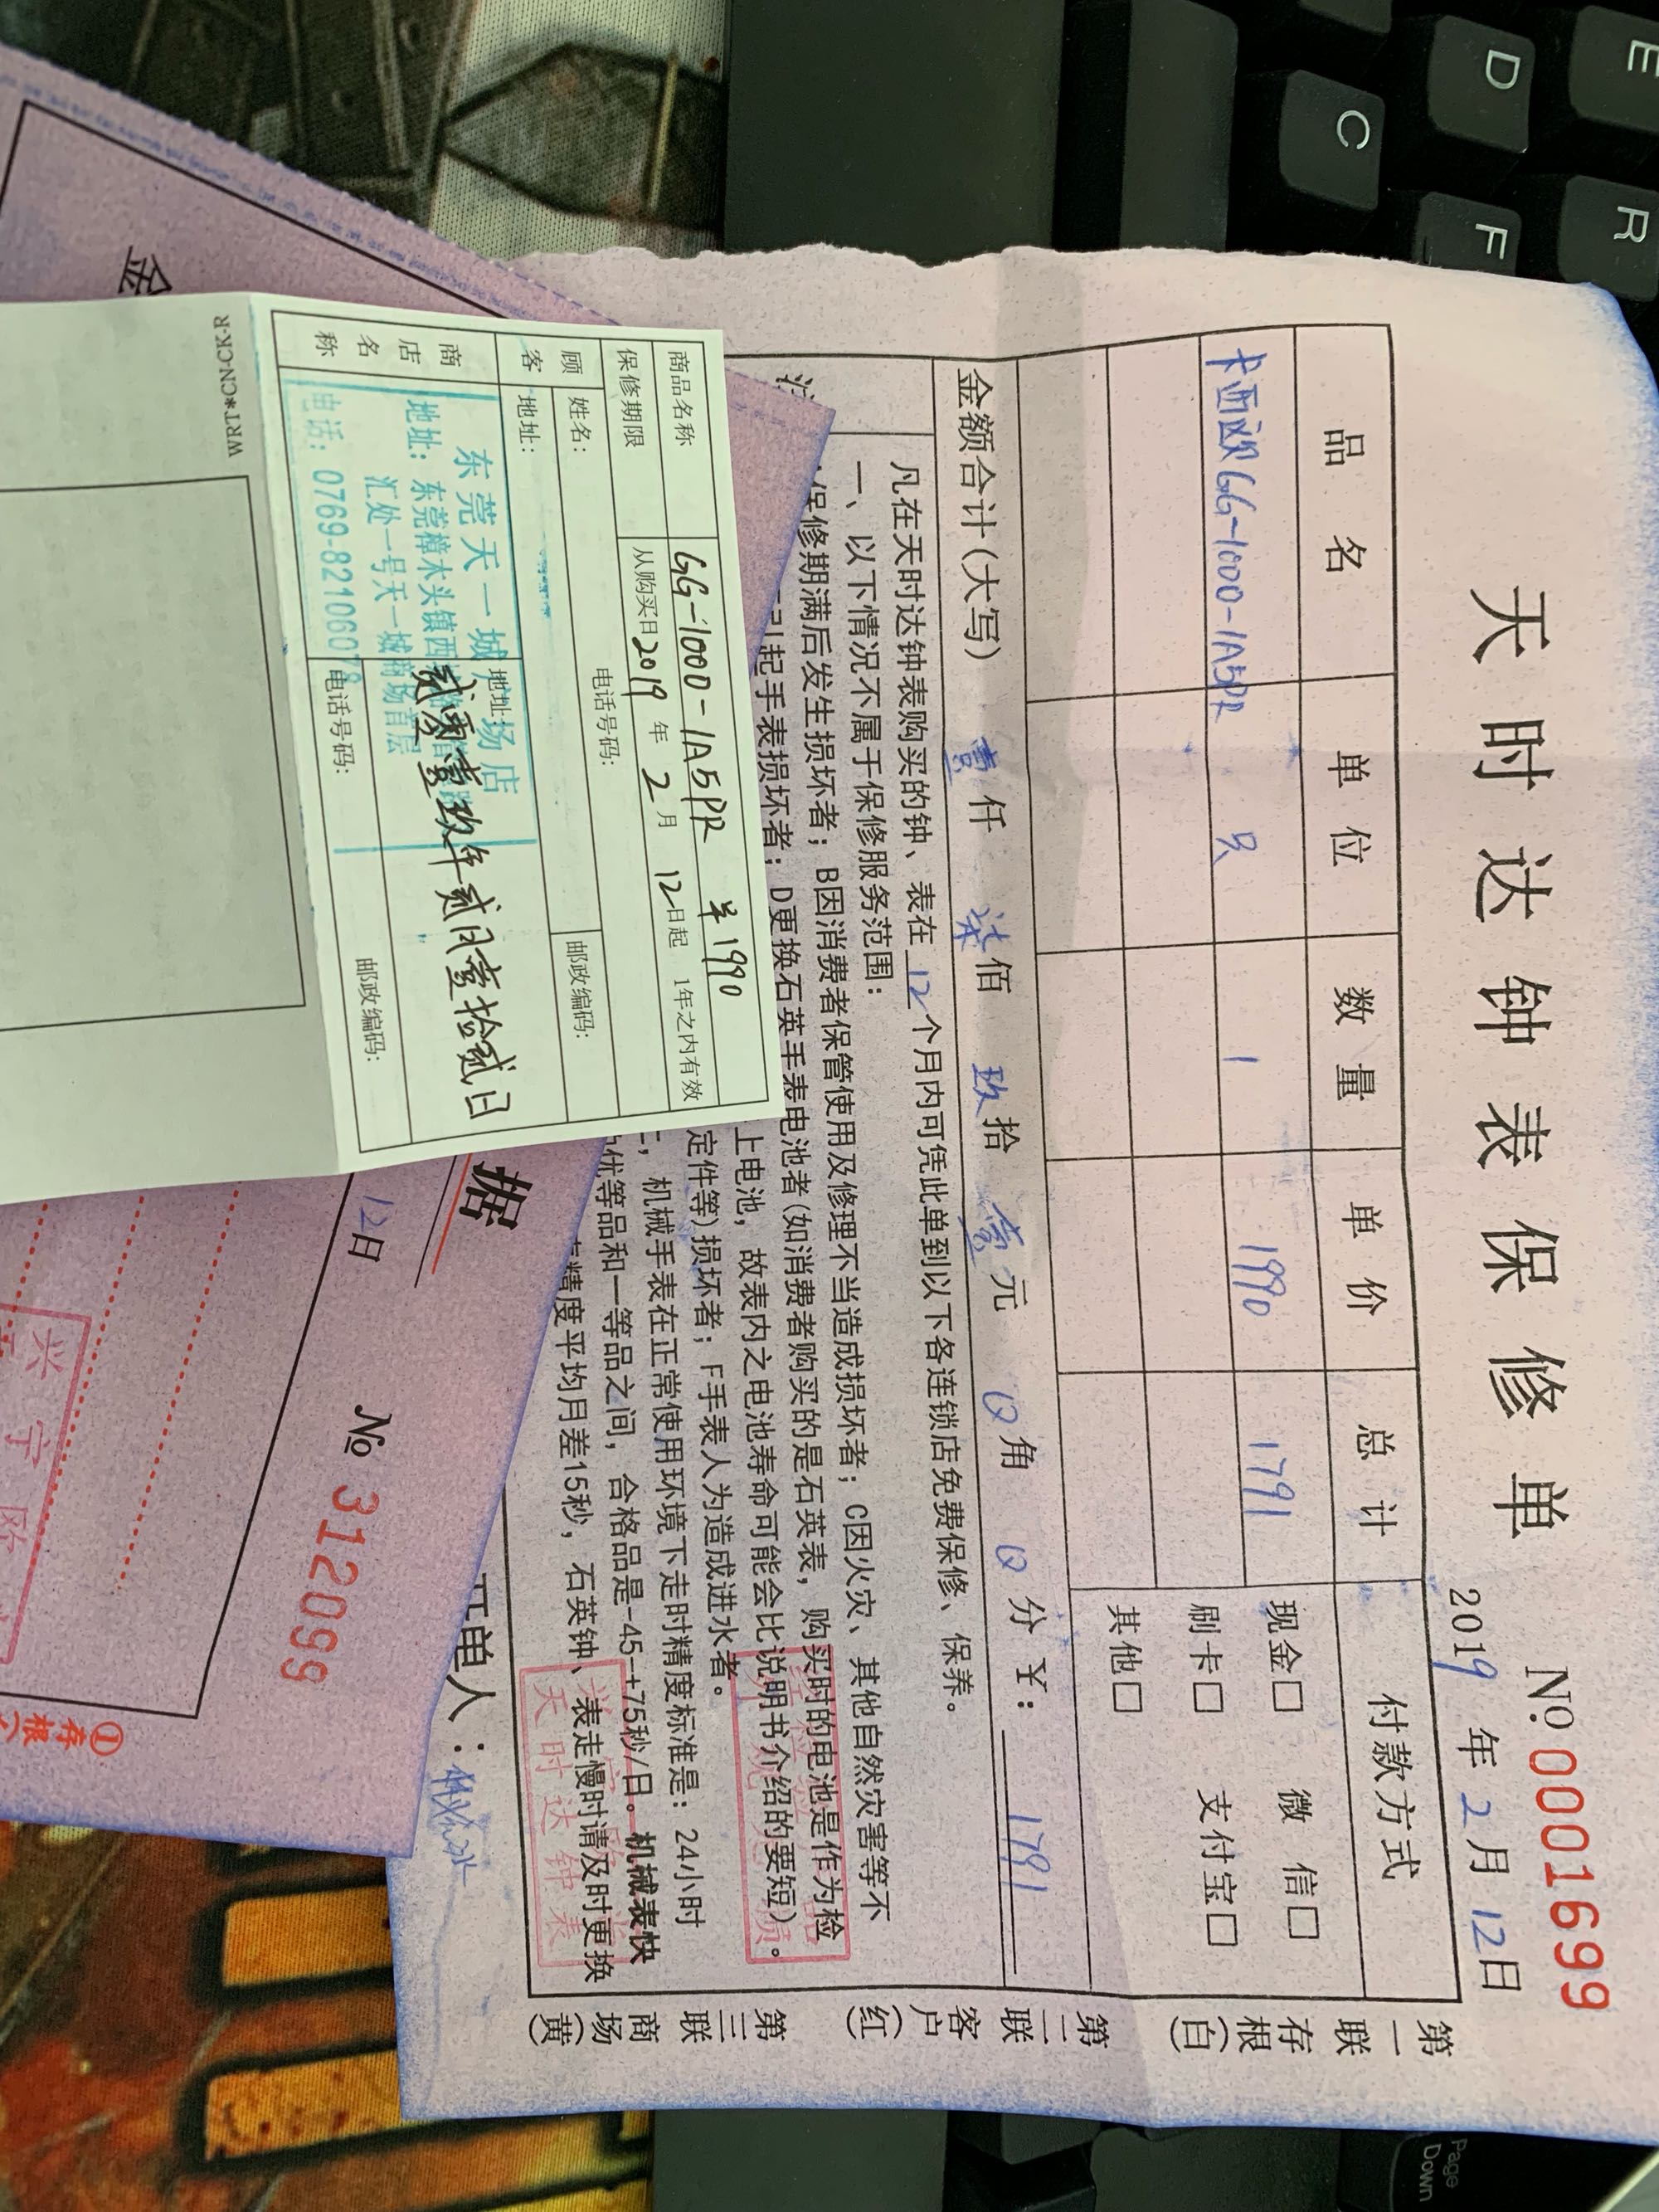 天时达钟表保修单
№ 0001699
2019年2月12日
品名 单位 数量 单价 总计 付款方式
卡西欧GG-1000-1A5PR 只 1 1990 1791
现金□ 微信□
刷卡□ 支付宝□
其他□
金额合计(大写) 壹仟 柒佰 玖拾 壹元 0角 0分 ¥: 1791
凡在天时达钟表购买的钟、表在12个月内可凭此单到以下各连锁店免费保修、保养。
一、以下情况不属于保修服务范围:
保修期满后发生损坏者; B因消费者保管使用及修理不当造成损坏者; C因火灾、其他自然灾害等不
引起手表损坏者; D更换石英手表电池者(如消费者购买的是石英表, 购买时的电池是作为检
上电池, 故表内之电池寿命可能会比说明书介绍的要短)。
定件等)损坏者; F手表人为造成进水者。
机械手表在正常使用环境下走时精度标准是: 24小时
优等品和一等品之间, 合格品是-45-+75秒/日。机械表快
精度平均月差15秒, 石英钟、表走慢时请及时更换
天时达钟表
开单人:
第一联存根(白)
第二联客户(红)
第三联商场(黄)
商品名称 GG-1000-1A5PR ¥1990
保修期限 从购买日2019年2月12日起 1年之内有效
顾客 姓名: 电话号码:
地址: 邮政编码:
商店名称 地址:
东莞天一城商场店
地址: 东莞樟木头镇西
汇处一号天一城商场首层
电话: 0769-82106078
贰零壹玖年贰月壹拾贰日
电话号码: 邮政编码:
WRT*CN-CK-R
金
据
12日
№ 312099
①存根
兴宁
E
D
C
R
F
Page
Down